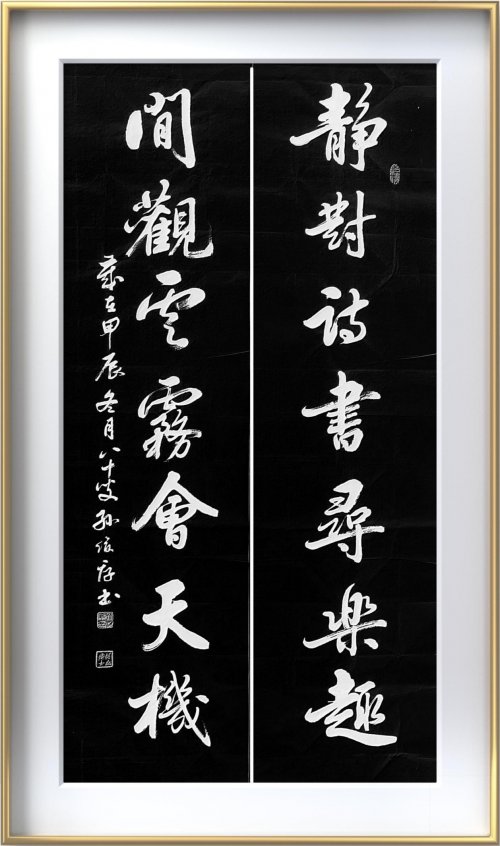 靜對詩書尋樂趣
閒觀雲霧會天機
歲在甲辰冬月八十叟孫俊存書